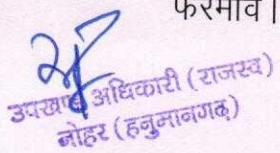 फरमावें।
उपखण्ड अधिकारी (राजस्व)
नोहर (हनुमानगढ़)